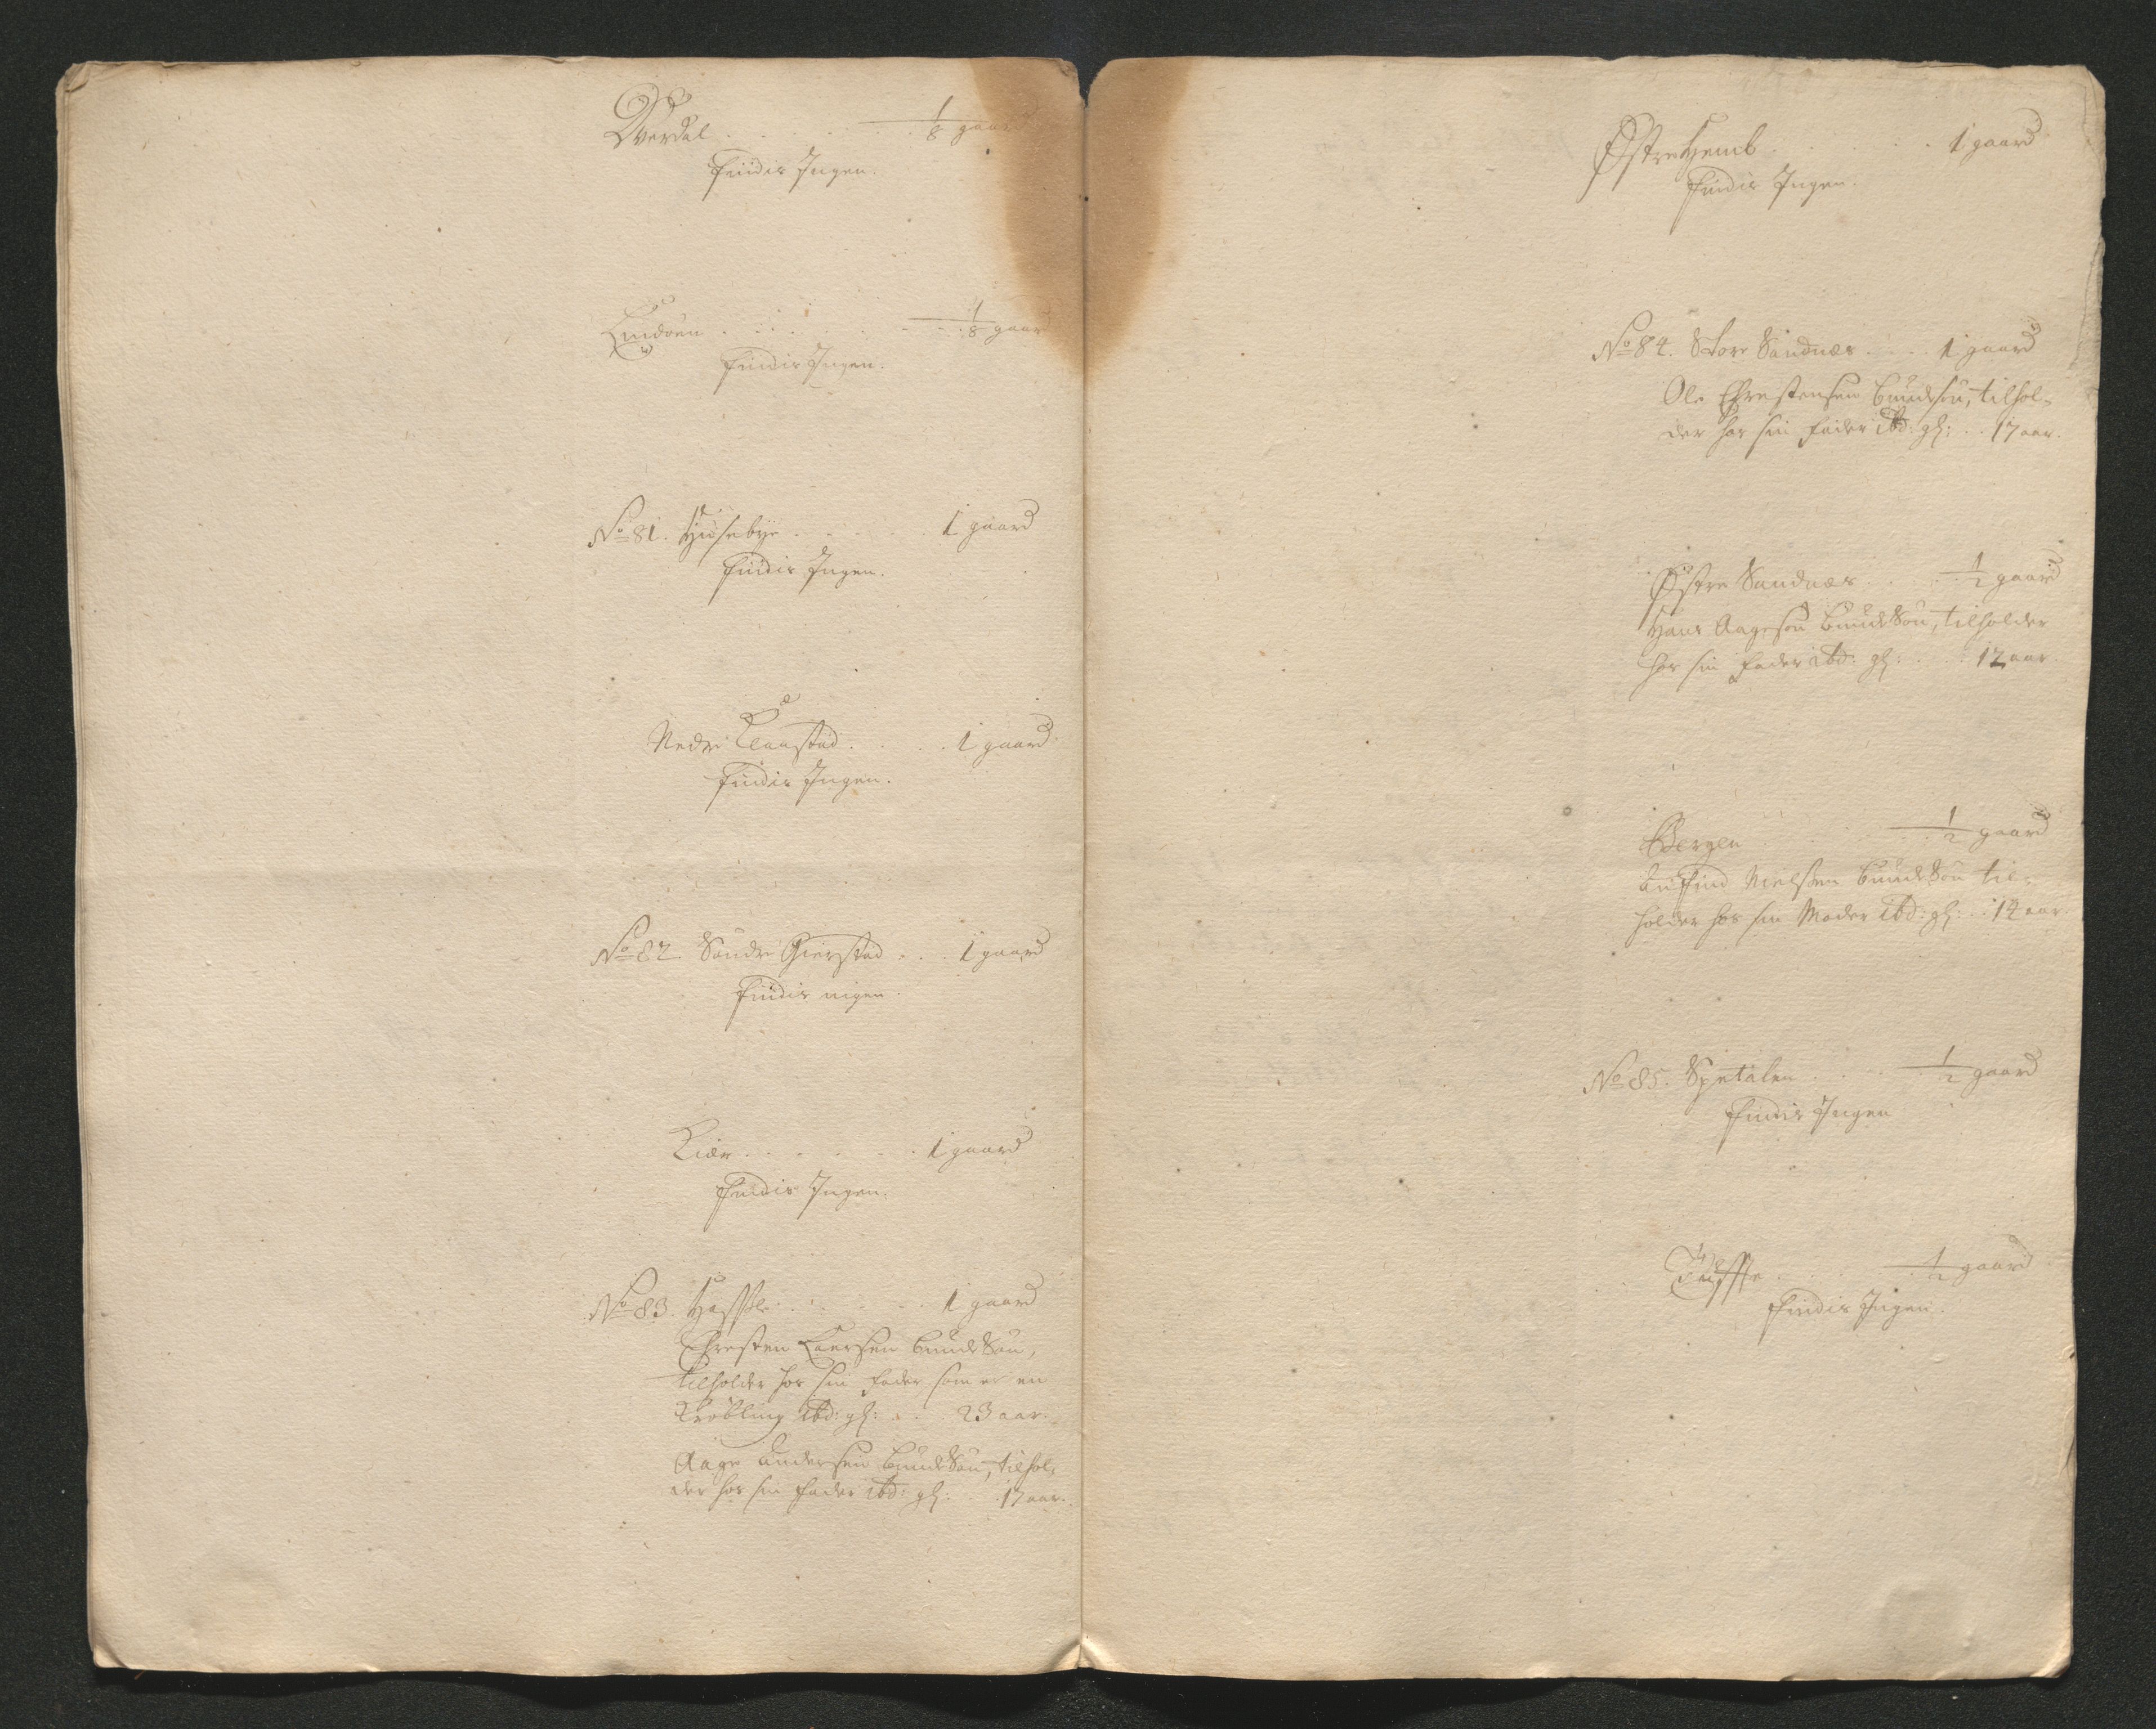 Qverdal . . . . . . 1/8 gaard
findis Ingen.
Lindøen . . . . . . 1/8 gaard
findis Ingen.
No 81. Huusebye . . . . . 1 gaard
findis Ingen.
Nedre Klaastad . . . . 1 gaard
findis Ingen.
No 82. Søndre Gierstad . . . 1 gaard
findis ingen.
Kiær . . . . . . 1 gaard
findis Ingen.
No 83. Hassle . . . . . 1 gaard
Christen Larsen bunde Søn,
tilholder hos sin fader som er en
Krøbling ibd: gl: . . . 23 aar.
Aage Andersen bunde Søn, tilhol-
der hos sin fader ibd: gl: . . 17 aar.
Østre Hemb . . . . . . 1 gaard
findis Ingen.
No 84. Store Sandnæs . . . . 1 gaard
Ole Christensen bunde søn, tilhol-
der hos sin fader ibd: gl: . . 17 aar.
Østre Sandnæs . . . . 1/2 gaard
Hans Aagesøn bunde Søn, tilholder
hos sin fader ibd: gl: . . . 12 aar.
Bergen . . . . . 1/2 gaard
Anfind Nielssen bunde Søn til-
holder hos sin Moder ibd: gl: . . 14 aar.
No 85. Spetalen . . . . . 1/2 gaard
findis Ingen
. . . . . 1/2 gaard
findis Ingen.